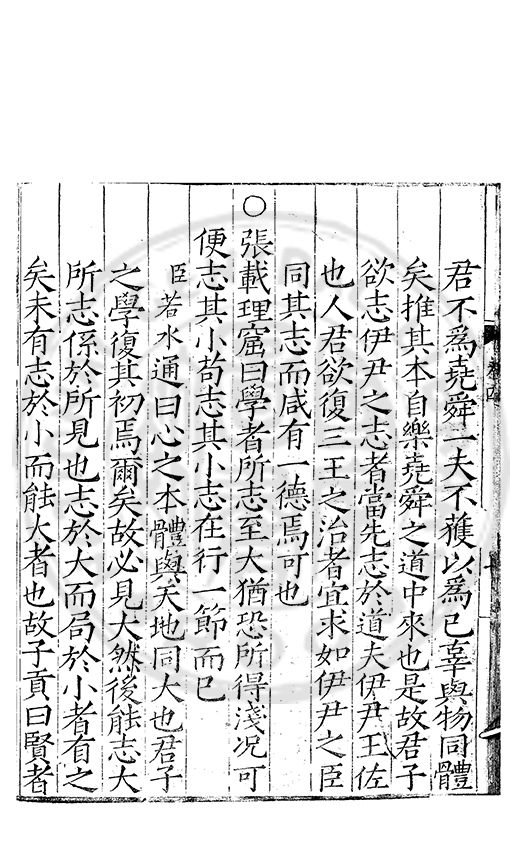 君不爲堯舜一夫不獲以爲已辜與物同體
矣推其本自樂堯舜之道中來也是故君子
欲志伊尹之志者當先志於道夫伊尹王佐
也人君欲復三王之治者宜求如伊尹之臣
同其志而咸有一德焉可也
○
張載理窟曰學者所志至大猶恐所得淺况可
便志其小苟志其小志在行一節而已
臣若水通曰心之本體與天地同大也君子
之學復其初焉爾矣故必見大然後能志大
所志係於所見也志於大而局於小者有之
矣未有志於小而能大者也故子貢曰賢者